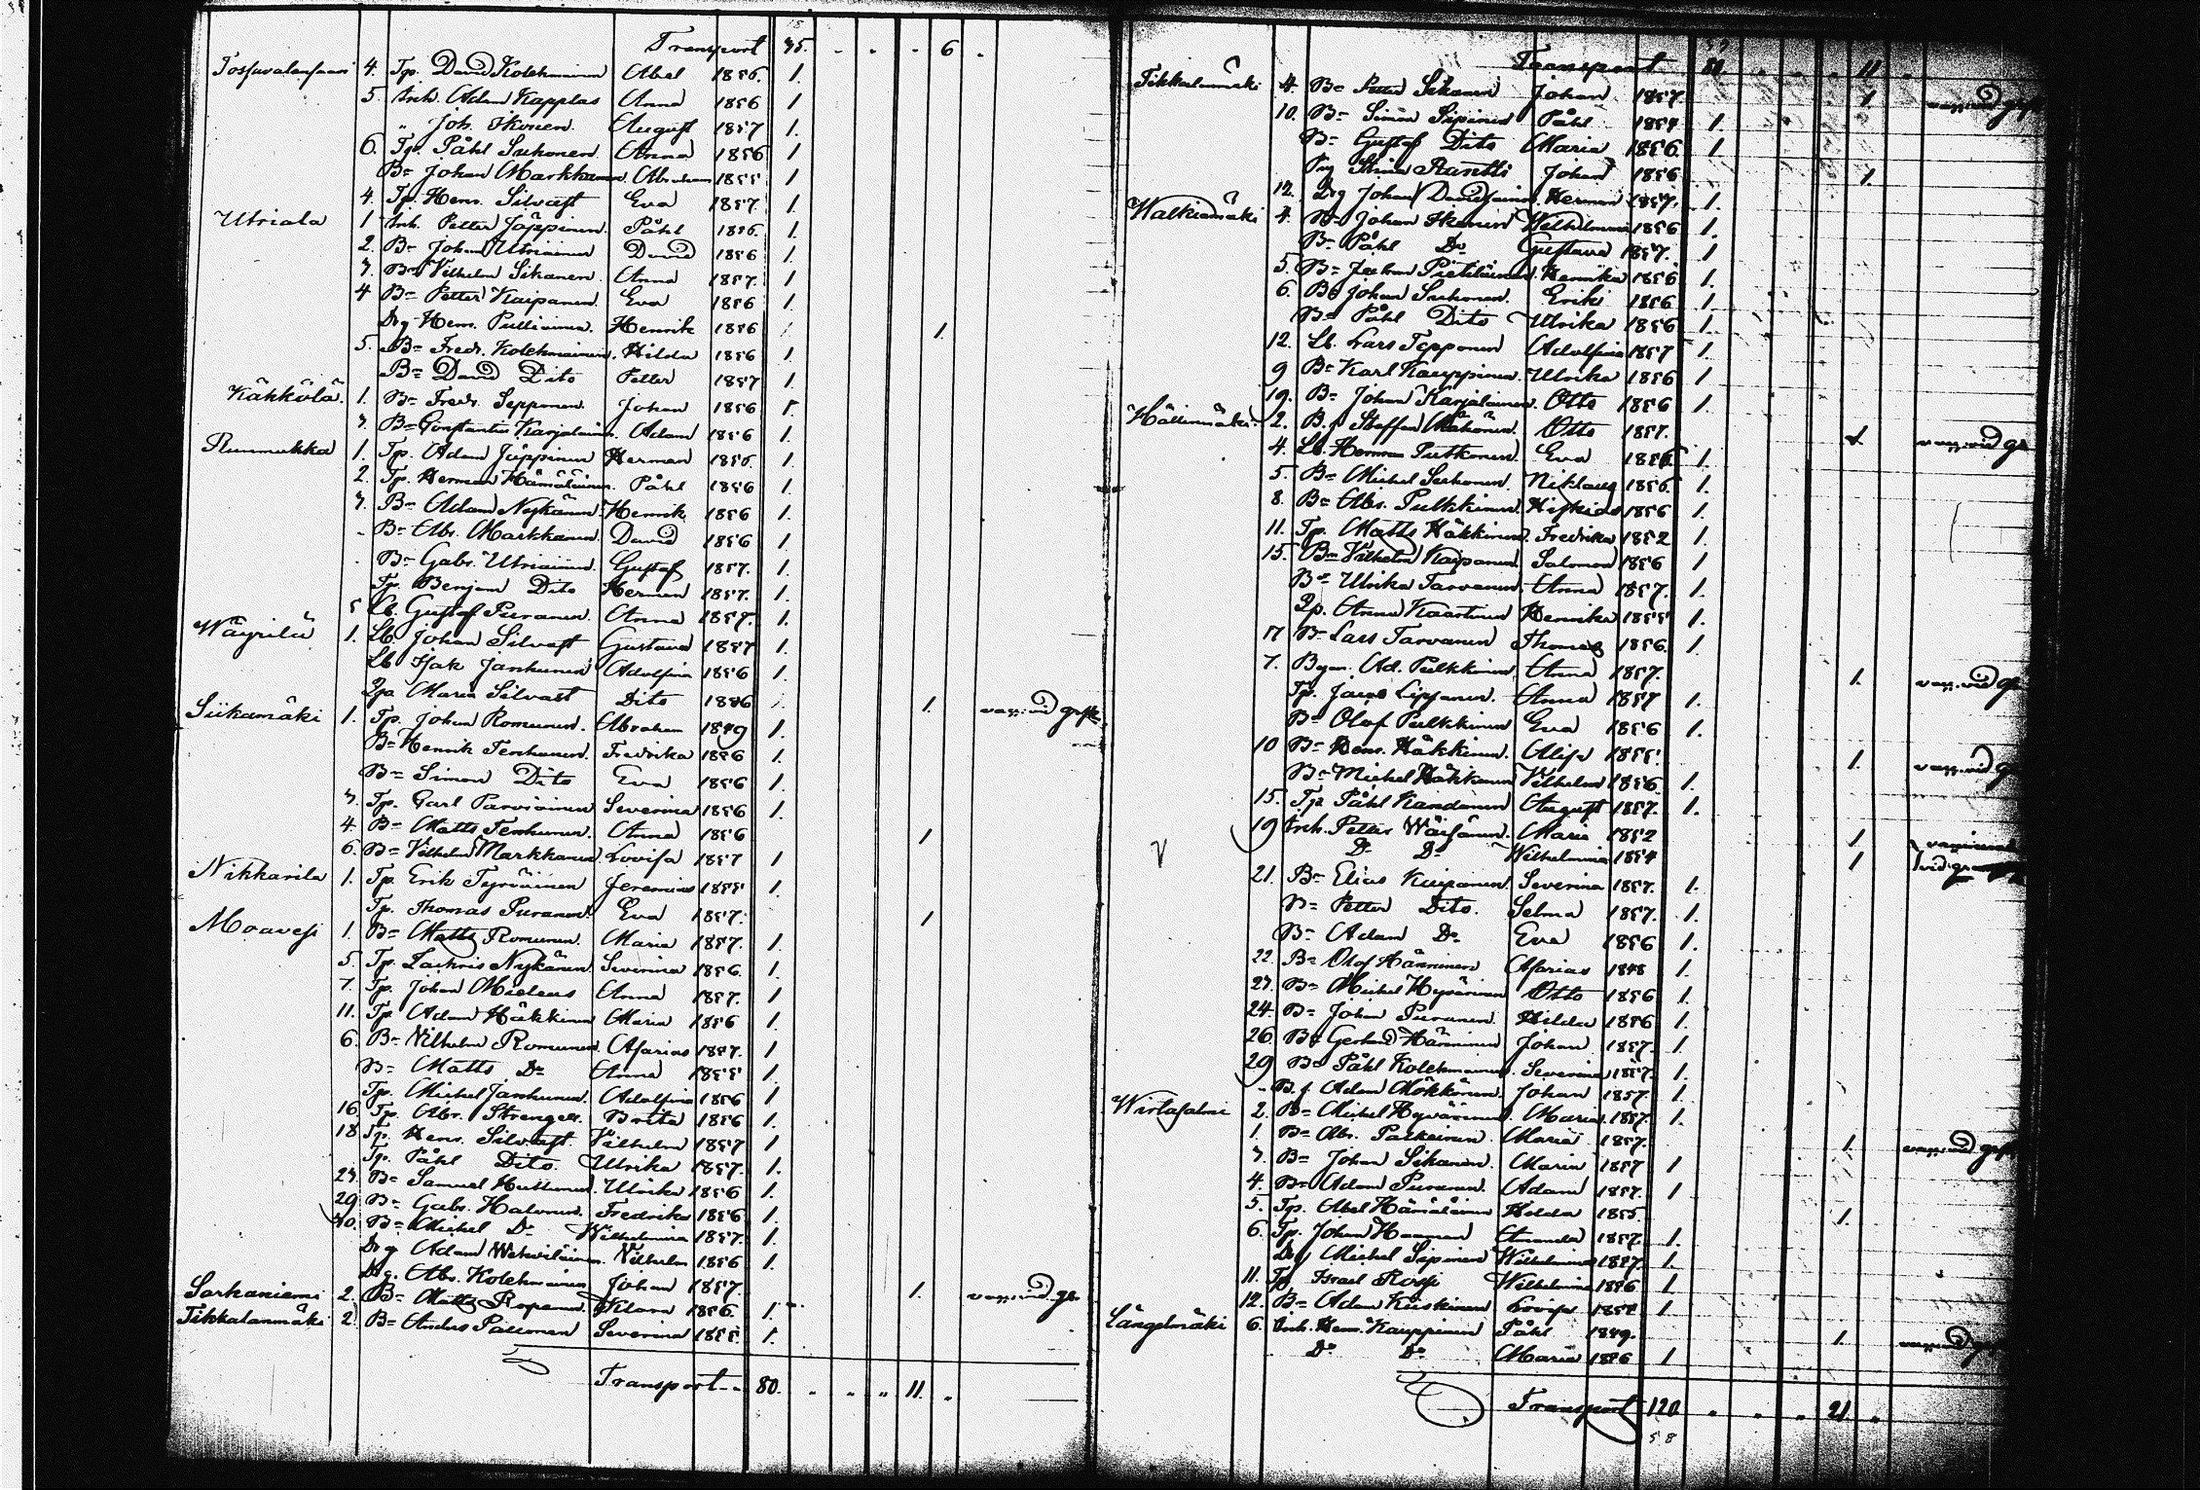 Transport 35. 6
4. Tp. David Kolehmainen Abel 1856. 1.
5. Inh. Adam Kapplas Anna 1856 1
" Joh. Ikonen. August 1857 1.
6. Tp. Påhl Suhonen. Anna 1856 1
Bn Johan Markkanen. Abraham 1855 1
4. Tp. Henr. Silvast Eva 1857. 1.
Utriala 1 Inh. Petter Jäppinen. Påhl 1856. 1.
2. Bn Johan Utriainen David 1856 1.
3. Bn Vilhelm Sikanen. Anna 1857. 1
4 Bn Petter Kaipanen. Eva 1856 1.
Drg Henr. Pulliainen. Henrik 1856 1.
5. Bn Fredr. Kolehmainen. Hilda 1856 1.
Bn David Dito Petter 1857 1.
Kähkölä. 1. Bn Fredr. Sepponen. Johan 1856 1.
3. Bn Constantin Karjalain. Adam 1856 1.
Runmukka 1. Tp. Adam Jäppinen Herman 1856. 1.
2. Tp. Herman Hämäläinen. Påhl 1856 1.
3. Bn Adam Nykänen Henrik 1856 1.
Bn Abr. Markkanen David 1856 1.
Bn Gabr. Utriainen. Gustaf 1857. 1.
Tp. Benjam Dito Herman 1857. 1.
5 Lb. Gustaf Puranen. Anna 1857. 1.
Wäyrilä 1. Lb. Johan Silvast Gustava 1857 1.
Lb. Isak Janhunen Adolfina 1856 1.
Maria Silvast Dito 1856 1.
Siikamäki 1. Tp. Johan Romunen. Abraham 1849 1.
Bn Henrik Tenhunen. Fredrika 1856 1.
Bn Simon Dito Eva 1856 1.
3. Tp. Carl Parviainen Severina 1856 1.
4. Bn Matts Tenhunen. Anna 1856 1
6. Bn Vilhelm Markkanen. Lovisa 1857 1
Nikkarila 1. Tp. Erik Tyrväinen Jeremias 1855 1.
Tp. Thomas Puranen. Eva 1857. 1
Moavesi 1. Bn Matts Romunen. Maria 1857. 1.
5. Tp. Zachris Nykänen. Severina 1856. 1.
7. Tp. Johan Mielens Anna 1857. 1
11. Tp. Adam Häkkinen Maria 1856 1.
6. Bn Vilhelm Romunen. Asarias 1857. 1
Bn Matts Do Anna 1855 1.
Tp. Michel Janhunen. Adolfina 1856 1
16. Tp. Abr. Strengell. Brita 1856 1.
18 Tp. Henr. Silvast. Vilhelm 1857 1
Tp. Påhl Dito. Ulrika 1857. 1.
23. Bn Samuel Huttunen. Ulrika 1856 1.
29. Bn Gabr. Halonen. Fredrika 1856 1.
30. Bn Michel Do Wilhelmina 1857. 1.
Drg Adam Vilhelm 1856 1.
Drg. Abr. Kolehmainen Johan 1857. 1.
Sarkaniemi 2. Bn Matts Roponen. Klara 1856. 1.
Tikkalanmäki 2. Bn Anders Pallonen Severina 1855. 1.
Transport 80. " " " 11. "
Transport 80. 11
Tikkalanmäki 4. Bn Petter Sikanen Johan 1857. 1.
10. Bn Simon Sipinen Påhl 1854 1.
Bn Gustaf Dito Maria 1856. 1
Stina Rantti Johan 1856 1.
12. Drg Johan Davidsainen. Herman 1857. 1.
Walkiamäki 4. Bn Johan Ikonen Wilhelmina 1856 1.
Bn Påhl Do Gustava 1857. 1
5. Bn Joachim Pietiläinen. Henrika 1856 1.
6. Bn Johan Suhonen. Erik 1856 1.
Bn Påhl Dito Ulrika 1856 1.
12. Lb. Lars Tepponen Adolfina 1857 1.
9 Bn Karl Kauppinen. Ulrika 1856 1
19. Bn Johan Karjalainen. Otto 1856 1.
Hällinmäki 2. B.f Staffan Mähönen. Otto 1857. 1.
4. Lb. Herman Putkonen. Eva 1856. 1.
5. Bn Michel Suhonen. Niklaus 1856. 1.
8. Bn Abr. Pulkkinen. Hiskias 1856 1.
11. Tp. Matts Häkkinen. Fredrika 1852 1.
15. Bn Vilhelm Kaipanen. Salomon 1856 1
Bn Ulrika Tarvanen. Anna 1857. 1.
Anna Kaartinen Henrika 1855 1.
17 Bn Lars Tarvanen Thomas 1856. 1.
7. Ad. Pulkkinen Anna 1857. 1.
Tp. Jacob Lipsanen. Anna 1857 1.
Bn Olof Pulkkinen Eva 1856 1.
10 Bn Henr. Häkkinen. Alisa 1855. 1.
Bn Michel Häkkinen Vilhelm 1856. 1.
15. Tp. Påhl Kandonen August 1857. 1.
19 Inh. Petter Wäisänen. Maria 1852 1
Do Do Wilhelmina 1854 1
21. Bn Elias Kaipanen. Severina 1857. 1.
Bn Petter Dito. Selma 1857. 1.
Bn Adam Do Eva 1856 1.
22. Bn Olof Hänninen Asarias 1848 1.
23. Bn Michel Hyvärinen Otto 1856 1.
24. Bn Johan Puranen. Hilda 1856 1.
26. Bn Gerhard Hänninen Johan 1857. 1.
29 Bn Påhl Kolehmainen. Severina 1857. 1.
B.f. Adam Mökkönen. Johan 1857. 1.
Wirtasalmi 2. Bn Michel Hyvärinen. Maria 1857. 1.
1. Bn Abr. Parkainen. Maria 1857. 1.
3. Bn Johan Sikanen. Maria 1857 1
4. Bn Adam Puranen. Adam 1857. 1
5. Tp. Abel Hämäläinen Hilda 1855. 1.
6. Tp. Johan Hannen Amanda 1857. 1.
Drg Michel Sipinen Wilhelmina 1857. 1.
11. Tp. Israel Rossi Wilhelmina 1856 1
12. Bn Adam Kiiskinen Lovisa 1857 1
Längelmäki 6. Inh. Henr. Kauppinen Påhl 1849. 1.
Do Do Maria 1856 1
Transport 120 " " " 21. "
58